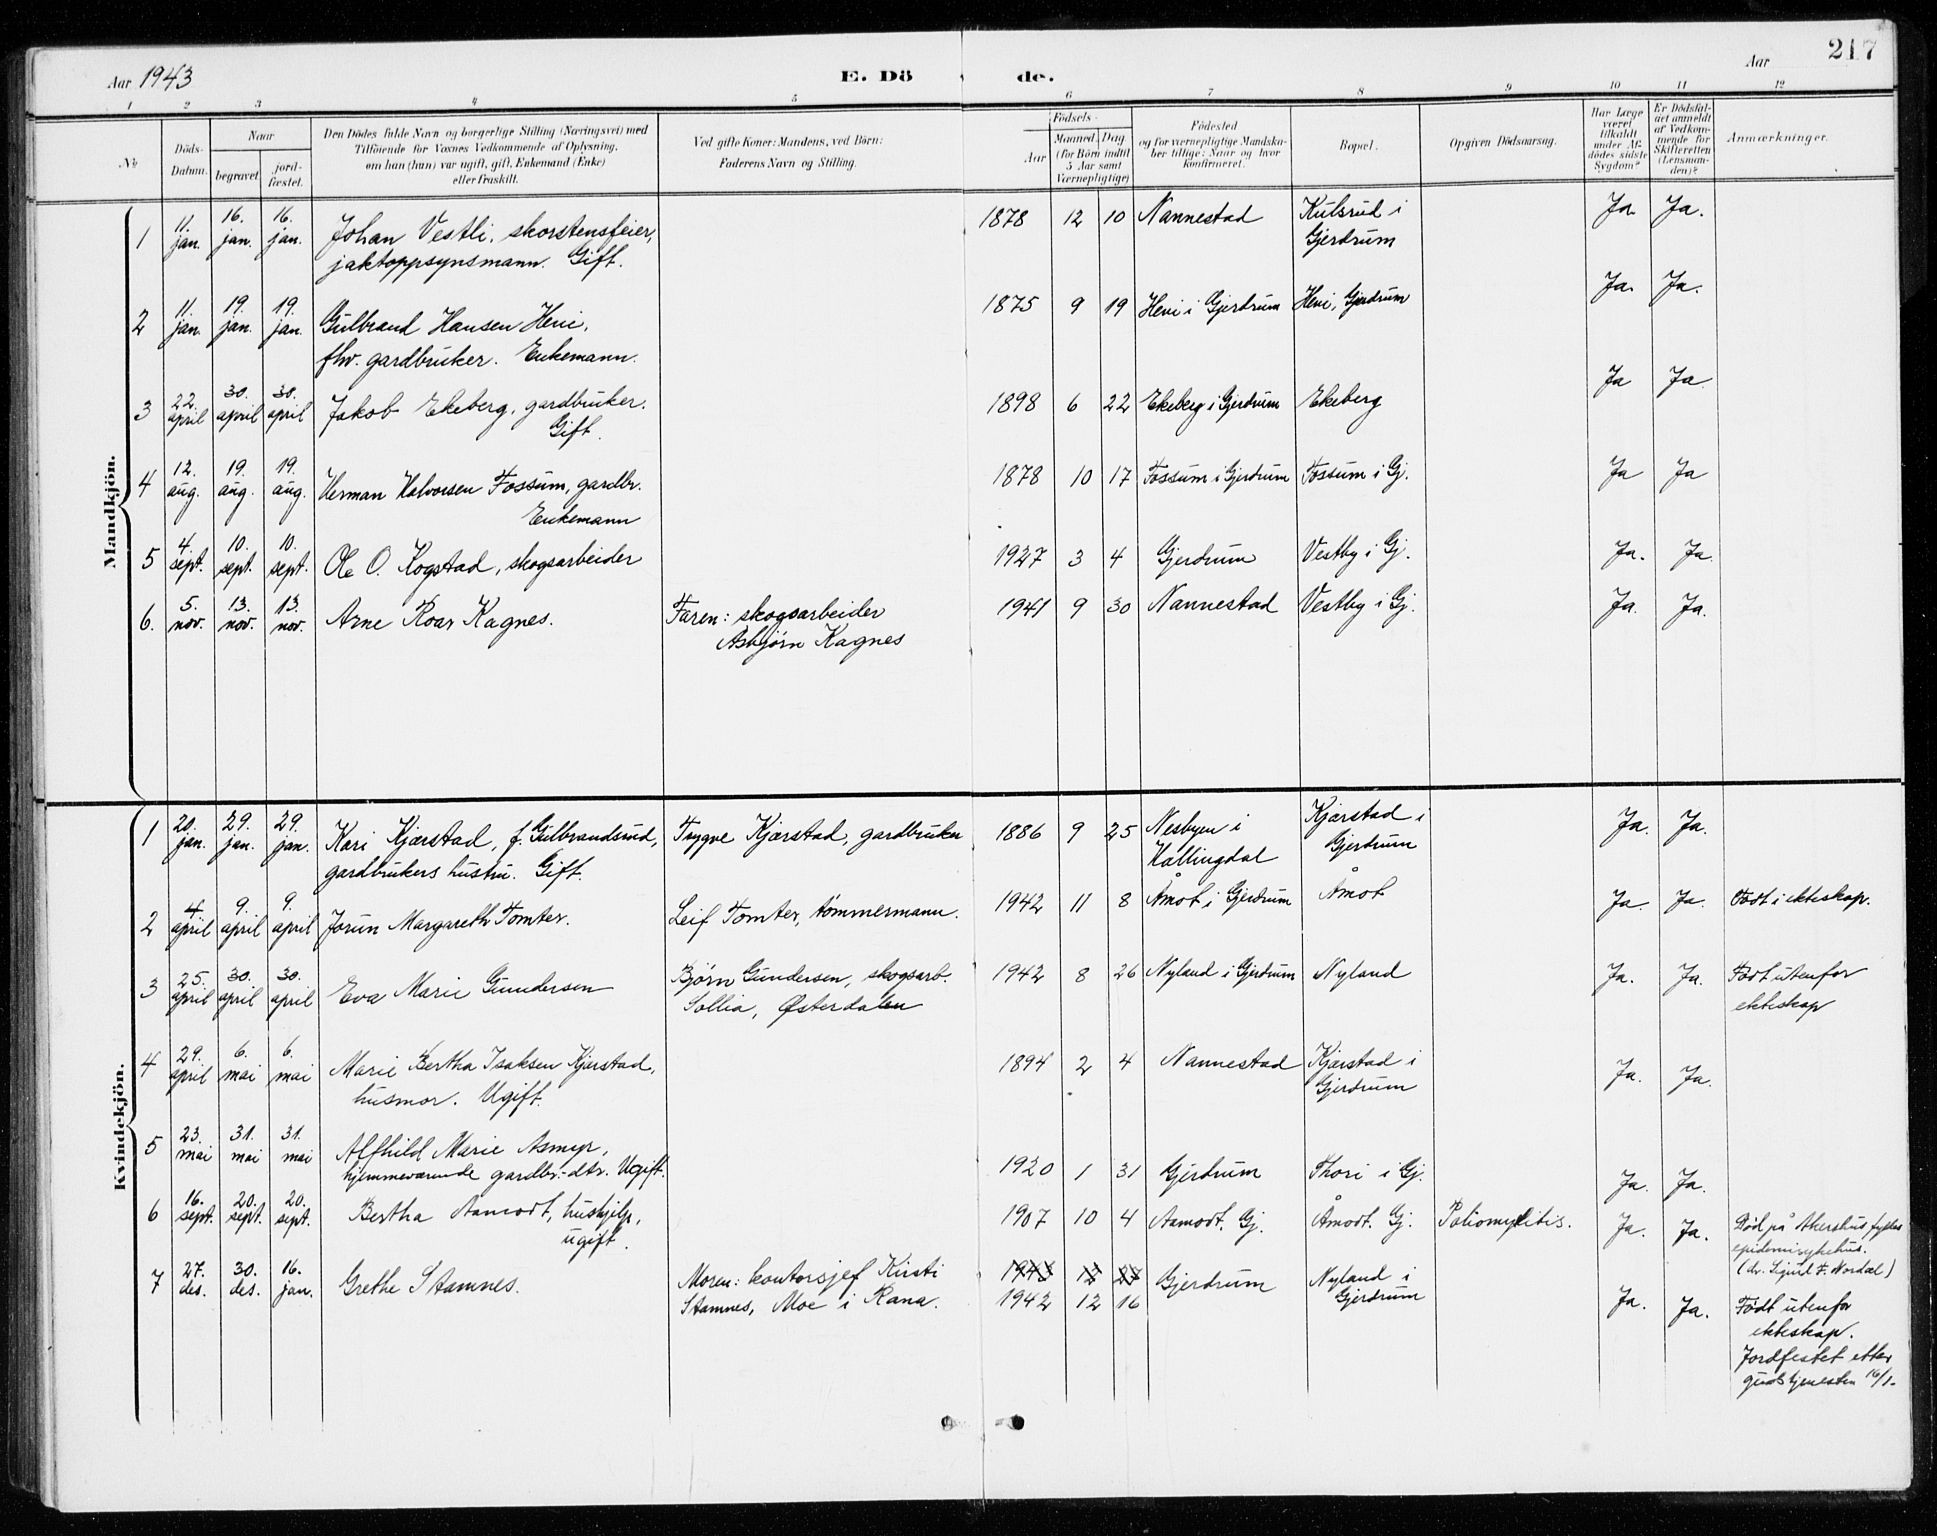 Aar 1943 E. Dö de. Aar 217
1 2 3 4 5 6 7 8 9 10 11 12
№
Döds-Datum.
Naar
begravet.
jord-fæstet.
Den Dödes fulde Navn og borgerlige Stilling (Næringsvei) med
Tilföiende for Voxnes Vedkommende af Oplysning,
om han (hun) var ugift, gift, Enkemand (Enke)
eller fraskilt.
Ved gifte Koner: Mandens, ved Börn:
Faderens Navn og Stilling.
Födsels-
Aar
Maaned. Dag
(for Börn indtil
5 Aar samt
Værnepligtige)
Födested
og for værnepligtige Mandskaber tillige: Naar og hvor
konfirmeret.
Bopæl.
Opgiven Dödsaarsag.
Har Læge
været
tilkaldt
under Afdödes sidste
Sygdom?
Er Dödsfaldet anmeldt
af Vedkommende for
Skifteretten
(Lensmanden)?
Anmærkninger.
Mandkjön.
1 11. jan. 16. jan. 16. jan. Johan Vestli, skorstensfeier, 1878 12 10 Nannestad Kulsrud i Ja. Ja.
jaktoppsynsmann. Gift. Gjerdrum
2 11. jan. 19. jan. 19. jan. Gulbrand Hansen Heni, 1875 9 19 Heni i Gjerdrum Heni, Gjerdrum Ja. Ja.
fhv. gardbruker. Enkemann.
3 22. april 30. april 30. april Jakob Ekeberg, gardbruker. 1898 6 22 Ekeberg i Gjerdrum Ekeberg Ja Ja
Gift.
4 12. aug. 19. aug. 19. aug. Herman Halvorsen Fossum, gardbr. 1878 10 17 Fossum i Gjerdrum Fossum i Gj. Ja Ja
Enkemann
5 4. sept. 10. sept. 10. sept. Ole O. Kogstad, skogsarbeider 1927 3 4 Gjerdrum Vestby i Gj. Ja. Ja.
6. 5. nov. 13. nov. 13. nov. Arne Roar Kagnes. Faren: skogsarbeider 1941 9 30 Nannestad Vestby i Gj. Ja. Ja.
Asbjørn Kagnes
Kvindekjön.
1 20. jan. 29. jan. 29. jan. Kari Kjærstad, f. Gulbrandsrud, Trygve Kjærstad, gardbruker 1886 9 25 Nesbyen i Kjærstad i Ja. Ja.
gardbrukers hustru. Gift. Hallingdal Gjerdrum
2 4. april 9. april 9. april Jorun Margareth Tomter. Leif Tomter, tømmermann. 1942 11 8 Åmot i Gjerdrum Åmot Ja. Ja. Født i ekteskap.
3 25. april 30. april 30. april Eva Marie Gundersen Bjørn Gundersen, skogsarb. 1942 8 26 Nyland i Gjerdrum Nyland Ja. Ja. Født utenfor
Sollia, Østerdalen ekteskap
4 29. april 6. mai 6. mai Marie Bertha Isaksen Kjærstad, 1894 2 4 Nannestad Kjærstad i Ja. Ja.
husmor. Ugift. Gjerdrum
5 23. mai 31. mai 31. mai Alfhild Marie Asmyr,
hjemmeværende gardbr.-dtr. Ugift. 1920 1 31 Gjerdrum Thori i Gj. Ja. Ja.
6 16. sept. 20. sept. 20. sept. Bertha Aamodt, hushjelp, 1907 10 4 Aamodt. Gj. Åmodt. Gj. Poliomyelitis. Ja. Ja. Død på Akershus fylkes
ugift. epidemisykehus.
(dr. Sigurd F. Nordal)
7 27. des. 30. des. 16. jan. Grethe Stamnes. Moren: kontorsjef Kirsti 1943 12 27 Gjerdrum Nyland i
Stamnes, Moe i Rana. 1942 12 16 Gjerdrum Ja. Ja. Født utenfor
ekteskap.
Jordfestet etter
gudstjenesten 16/1.